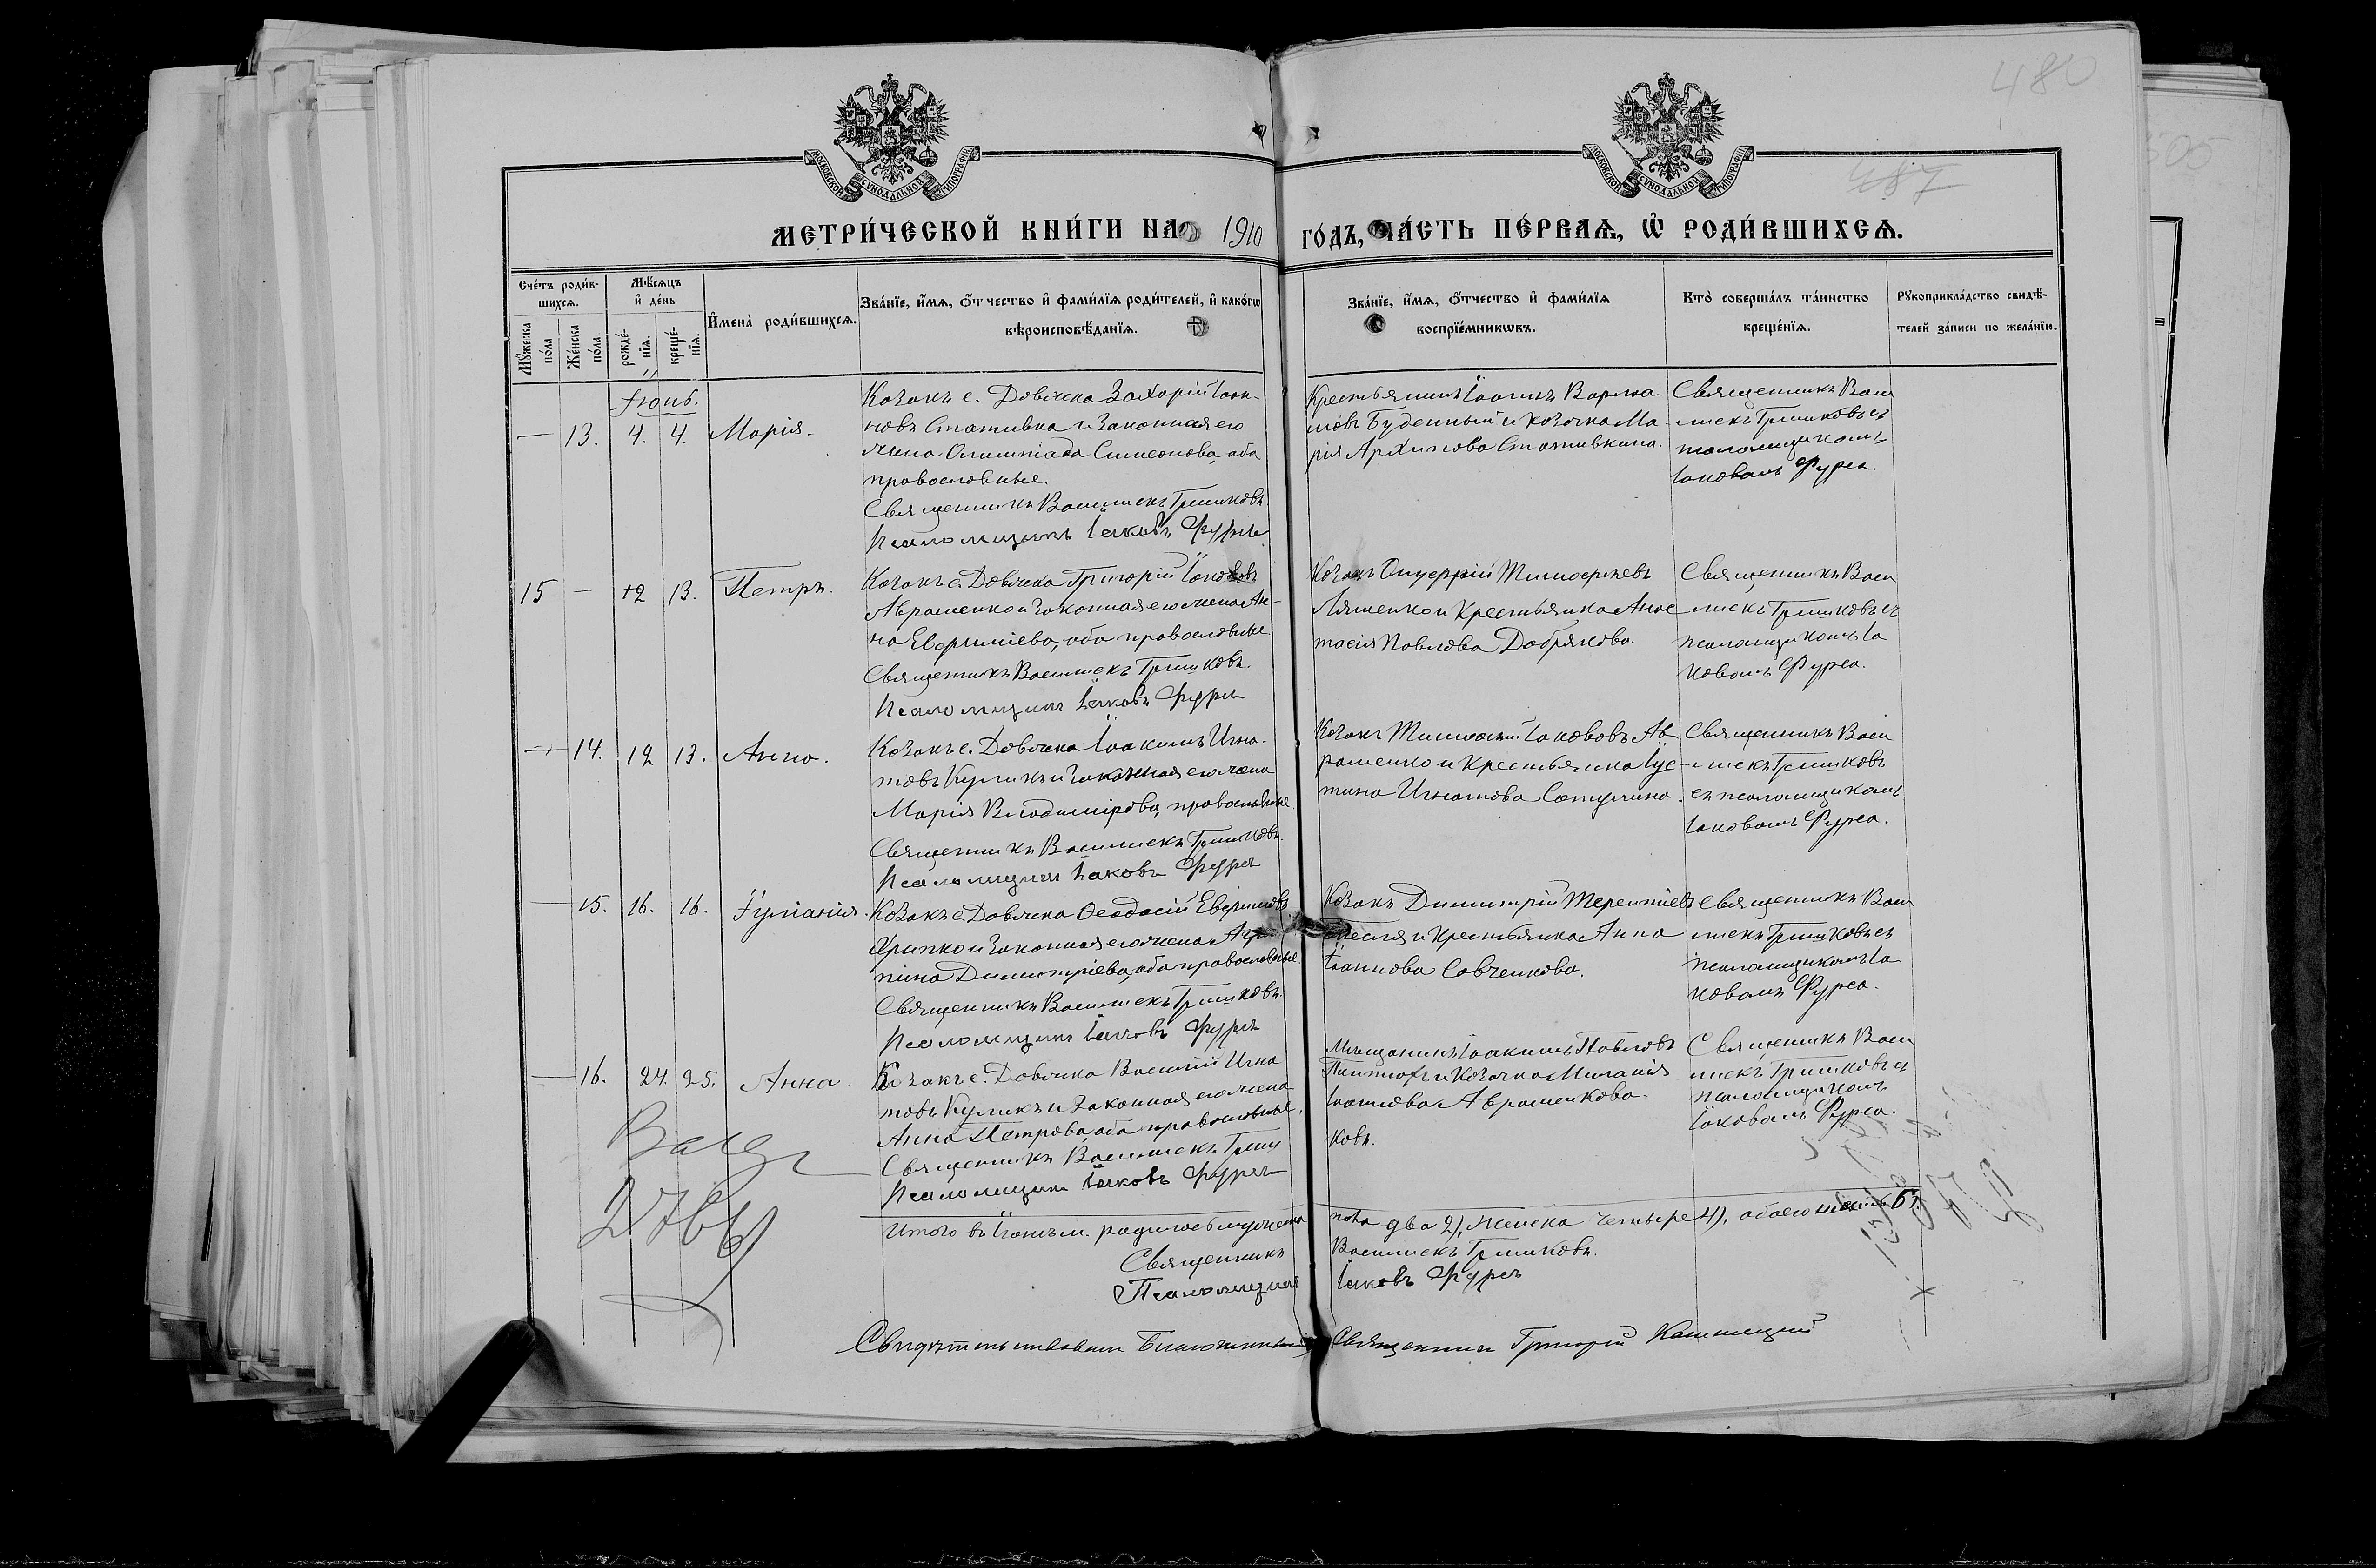 480
487
505
МОСКОВСКОЙ СѴНОДАЛЬНОЙ ТИПОГРАФІИ
МОСКОВСКОЙ СѴНОДАЛЬНОЙ ТИПОГРАФІИ
МЕТРИ́ЧЕСКОЙ КНИ́ГИ НА 1910 ГО́ДЪ, ЧА́СТЬ ПЕ́РВАѦ, Ѡ҆ РОДИ́ВШИХСѦ.
Сче́тъ роди́в-
шихсѧ.
Мꙋ́жеска по́ла
Же́нска по́ла.
Мѣ́сѧцъ
и҆ де́нь
рожде́-
нїѧ.
креще́-
нїѧ.
И҆мена̀ роди́вшихсѧ.
Зва́нїе, и҆́мѧ, ѻ҆́тчество и҆ фами́лїѧ роди́телей, и҆ како́гѡ
вѣроисповѣ́данїѧ.
Зва́нїе, и҆́мѧ, ѻ҆́тчество и҆ фами́лїѧ
воспрїе́мникѡвъ.
Кто̀ соверша́лъ та́инство
креще́нїѧ.
Рꙋкоприкла́дство свидѣ́-
телей за́писи по жела́нїю.
Іюнь.
— 13. 4. 4. Марія.
Козакъ с. Довжека Захарій Іоан-
новъ Стативка и законная его
жена Олимпіада Симеонова, оба
православные.
Священникъ Василискъ Гришковъ.
Псаломщикъ Іаковъ Фурса
Крестьянинъ Іоаннъ Варла-
мовъ Буденный и козачка Ма-
рія Архипова Стативкина.
Священникъ Васи
лискъ Гришковъ съ
псаломщикомъ
Іаковомъ Фурса.
15 — 12 13. Петръ.
Козакъ с. Довжека Григорій Іаковъ
Аврашенко и законная его жена Ан-
на Евфиміева, оба православные
Священникъ Василискъ Гришковъ.
Псаломщикъ Іаковъ Фурса
Козакъ Онуфрій Тимофеевъ
Ляшенко и крестьянка Анас
тасія Павлова Добрякова.
Священникъ Васи
лискъ Гришковъ съ
псаломщикомъ Іа
ковомъ Фурса.
— 14. 12 13. Анна.
Козакъ с. Довжека Іоакимъ Игна-
товъ Куликъ и законная его жена
Марія Владимірова, православные.
Священникъ Василискъ Гришковъ.
Псаломщикъ Іаковъ Фурса
Козакъ Тимофей Іакововъ Ав
рашенко и крестьянка Іус-
тина Игнатова
Священникъ Васи
лискъ Гришковъ
съ псаломщикомъ
Іаковомъ Фурса.
— 15. 16. 16. Іуліанія.
Козакъ с. Довжека Ѳеодосій Евфимовъ
Хрипко и законная его жена Агрип
пина Димитріева, оба православные.
Священникъ Василискъ Гришковъ.
Псаломщикъ Іаковъ Фурса
Козакъ Димитрій Терентіевъ
и крестьянка Анна
Іоаннова Савченкова.
Священникъ Васи
лискъ Гришковъ съ
псаломщикомъ Іа
ковомъ Фурса.
— 16. 24. 25. Анна.
Козакъ с. Довжика Василій Игна
товъ Куликъ и законная его жена
Анна Петрова, оба православные.
Священникъ Василискъ Гриш
ковъ.
Псаломщикъ Іаковъ Фурса
Мещанинъ Іоакимъ Павловъ
и козачка Меланія
Іоаннова Аврашенкова.
Священникъ Васи
лискъ Гришковъ съ
псаломщикомъ
Іаковомъ Фурса.
Итого въ Іюнѣ м. родилось мужеска пола два 2), женска четыре 4), обоего шесть 6).
Священникъ Василискъ Гришковъ.
Псаломщикъ Іаковъ Фурса
Свидѣтельствовалъ Благочинный Священникъ Григорій